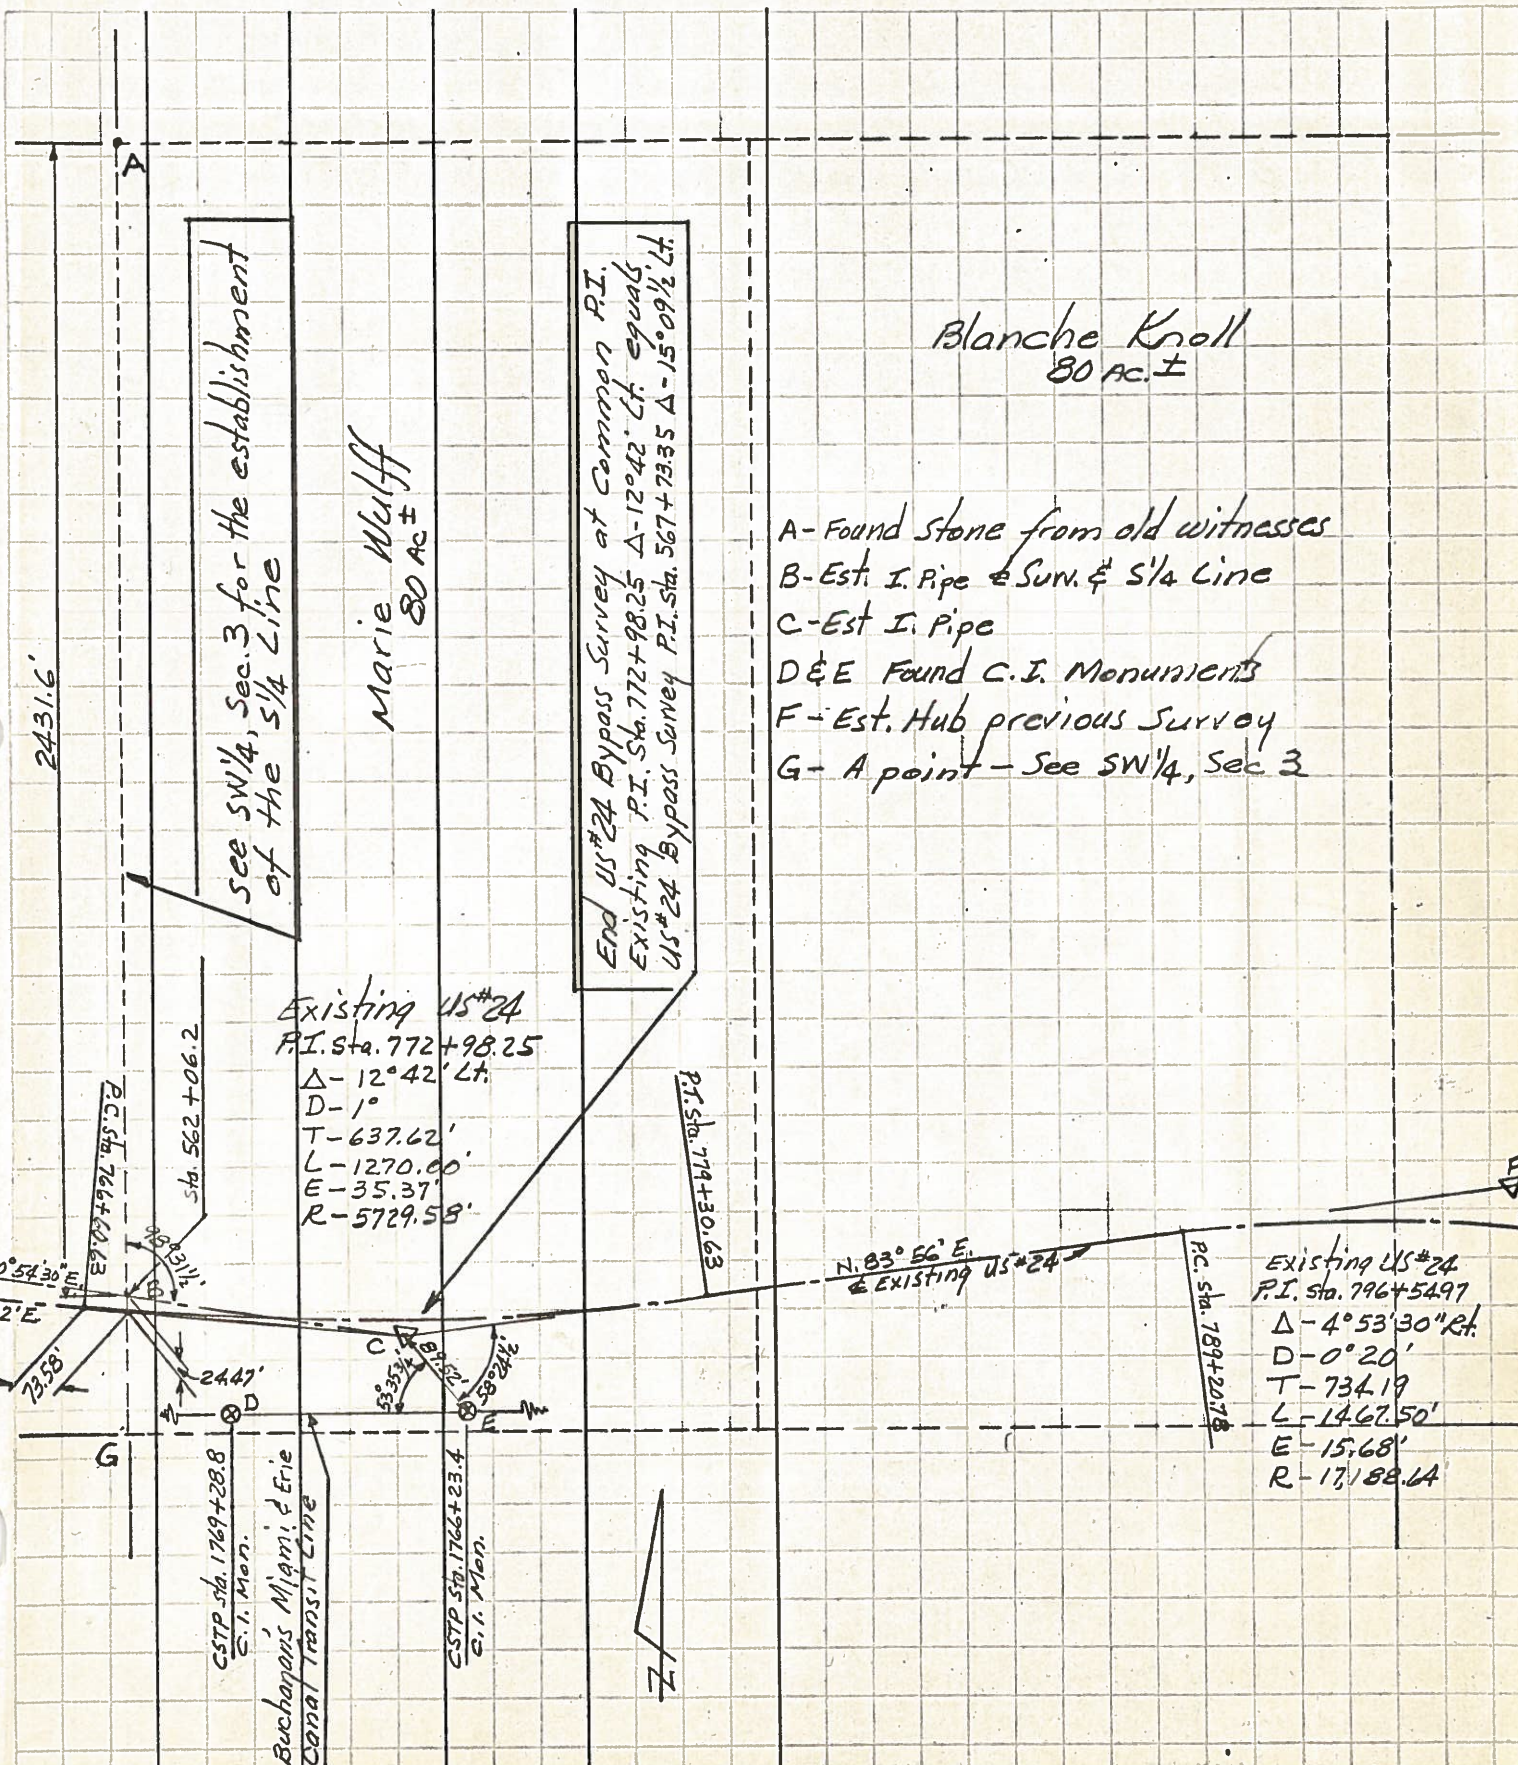 A
2431.6'
See SW¼, Sec. 3 for the establishment
of the S¼ Line
Marie Wulff
80 Ac ±
End US#24 Bypass Survey at Common P.I.
Existing P.I. Sta. 772+98.25 Δ-12°42' Lt. equals
US#24 Bypass Survey P.I. Sta. 567+73.35 Δ-15°09½' Lt.
Blanche Knoll
80 Ac. ±
A- Found Stone from old witnesses
B- Est. I. Pipe ℄ Surv. & S¼ Line
C- Est I. Pipe
D & E Found C.I. Monuments
F- Est. Hub previous Survey
G- A point - See SW¼, Sec 3
Existing US#24
P.I. Sta. 772+98.25
Δ- 12°42' Lt.
D- 1°
T- 637.62'
L- 1270.00'
E- 35.37'
R- 5729.58'
P.C. Sta. 766+60.63
Sta. 562+06.2
98°31½'
0°54'30" E.
2'E
B
73.58'
24.47'
C
89.52'
53°35¾'
58°24½'
D
E
G
P.T. Sta. 779+30.63
N. 83° 56' E.
℄ Existing US#24
P.C. Sta. 789+20.78
F
Existing US#24
P.I. Sta. 796+54.97
Δ- 4°53'30" Rt.
D- 0°20'
T- 734.19
L- 1467.50'
E- 15.68'
R- 17,188.64
CSTP Sta. 1769+28.8
C.I. Mon.
Buchanan's Miami & Erie
Canal Transit Line
CSTP Sta. 1766+23.4
C.I. Mon.
N